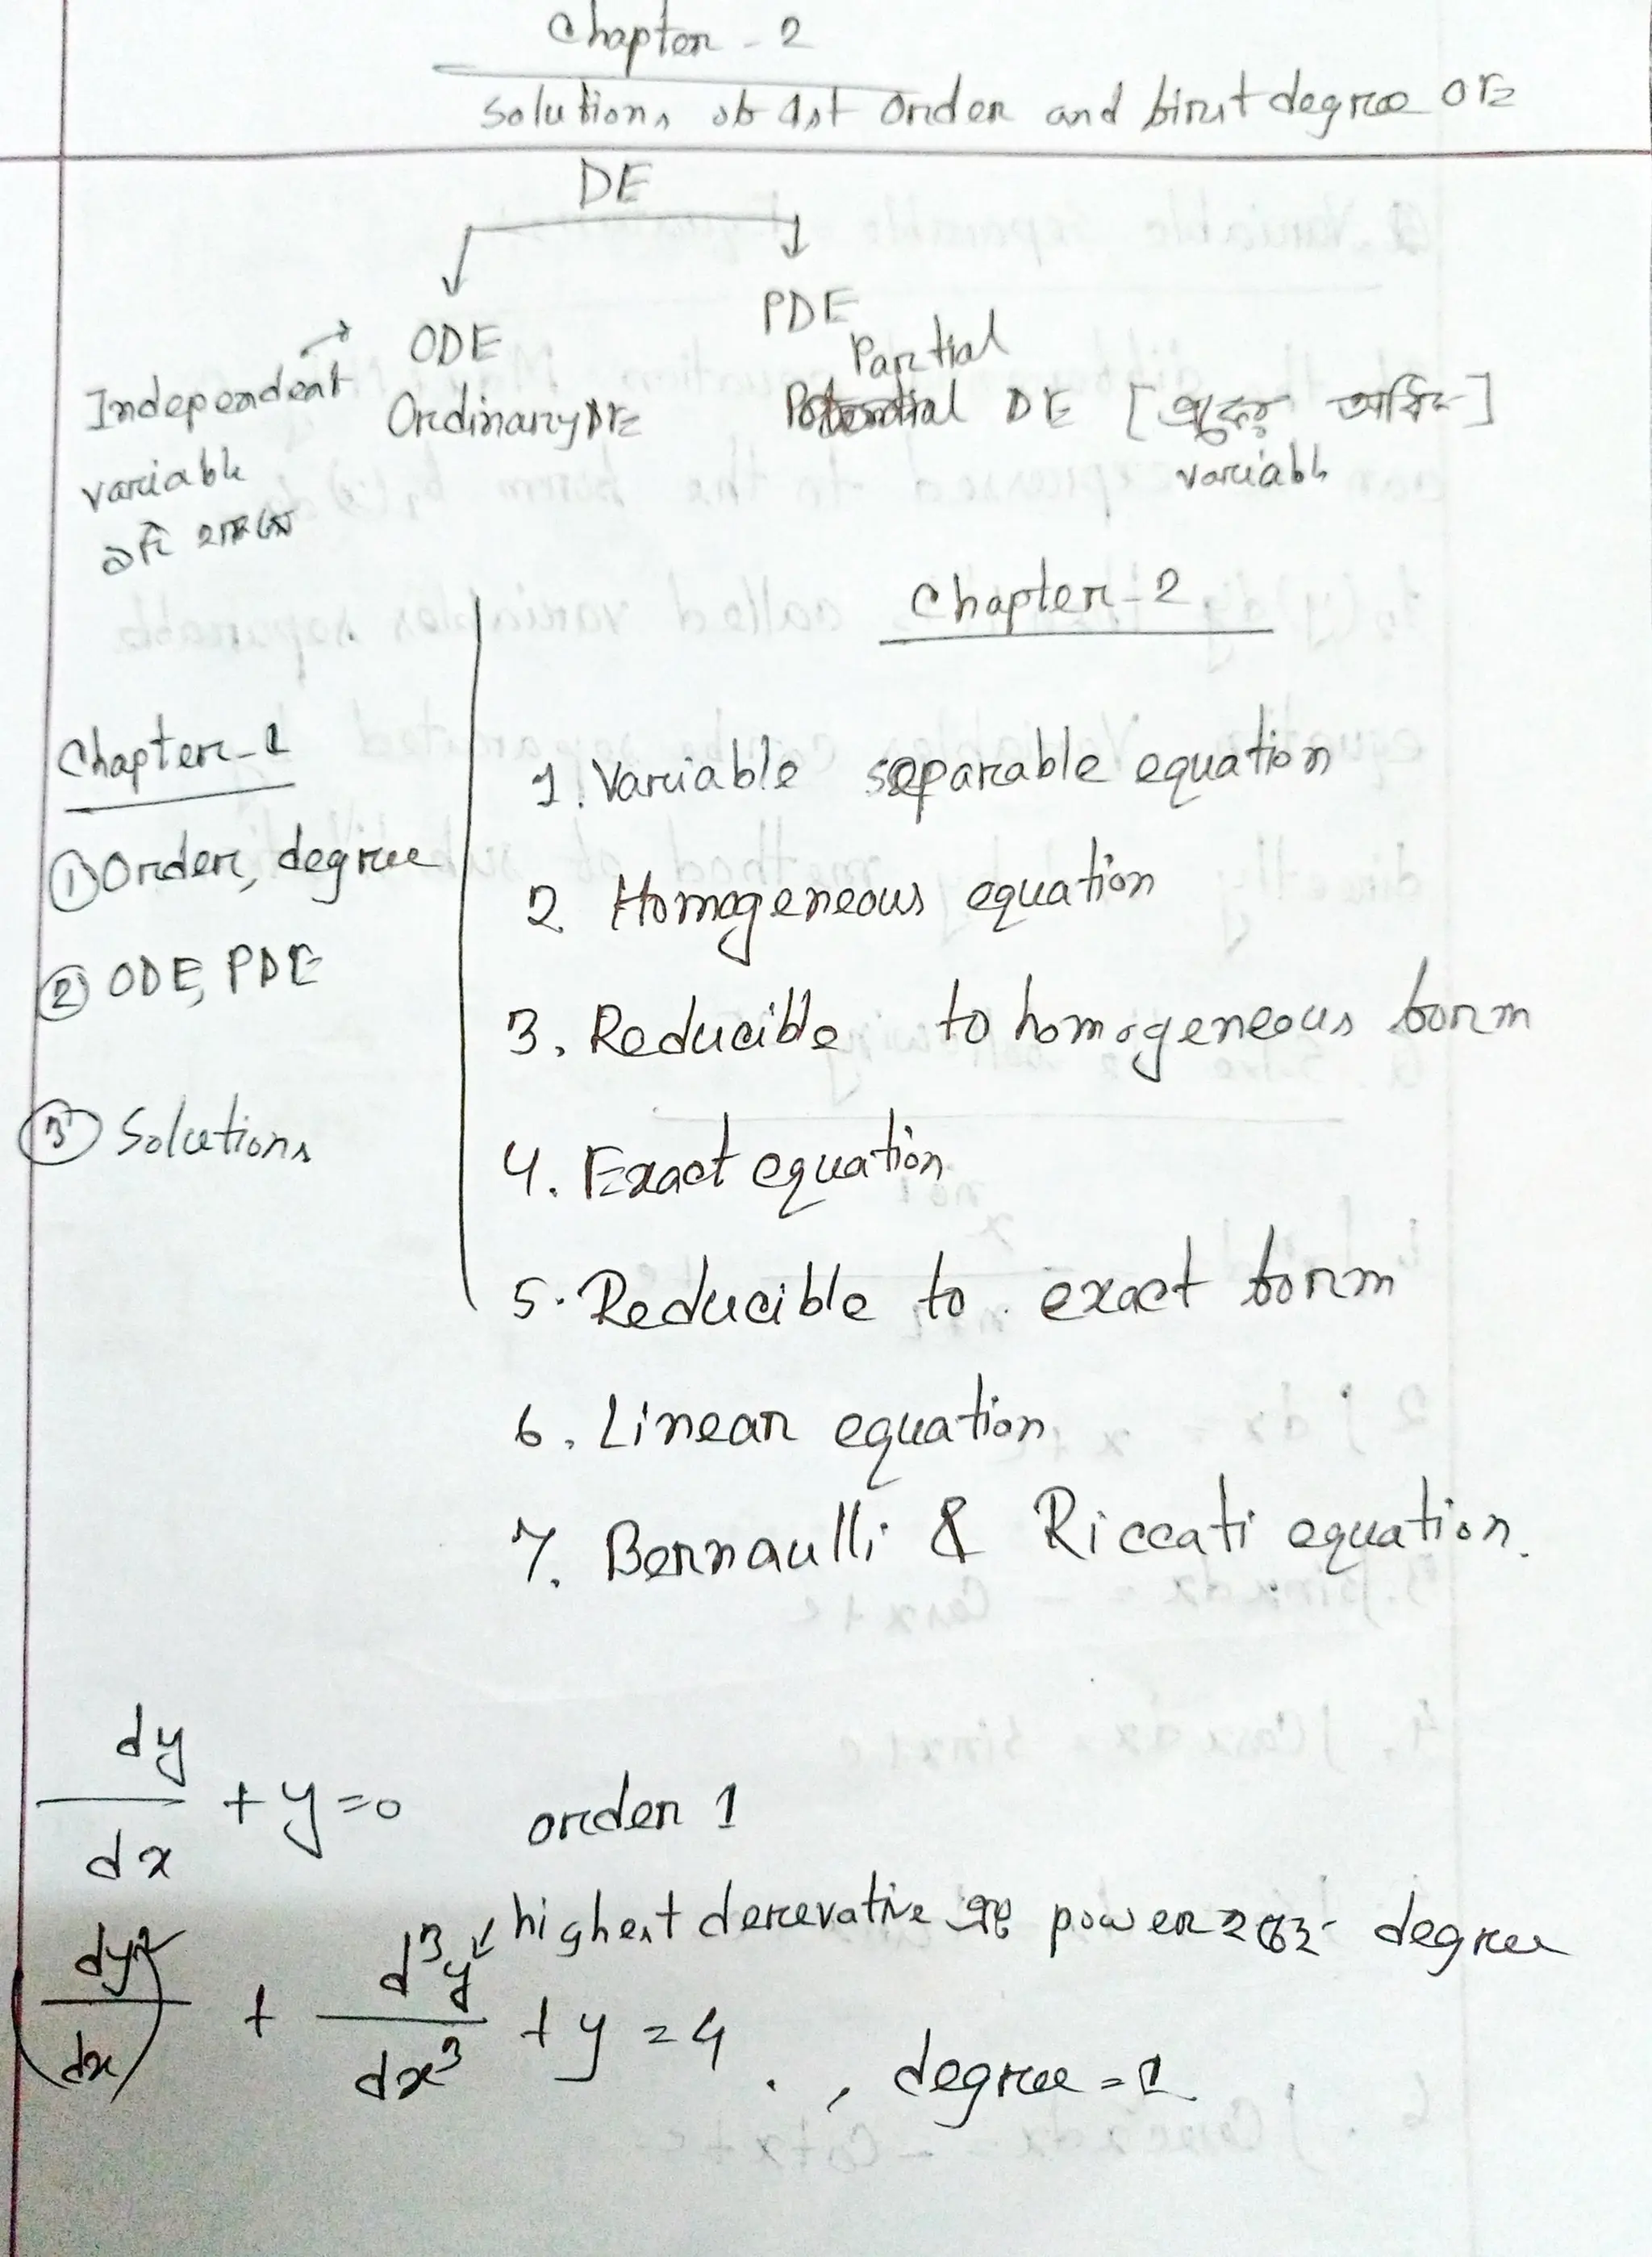 Chapter - 2
Solutions of 1st Order and first degree DE
DE
ODE
PDE
Ordinary DE
Partial
DE [একের অধিক]
variable
Independent
variable
১টি থাকলে
Chapter-1
① Order, degree
② ODE, PDE
③ Solutions
Chapter-2
1. Variable separable equation
2 Homogeneous equation
3. Reducible to homogeneous form
4. Exact equation
5. Reducible to exact form
6. Linear equation
7. Bernaulli & Riccati equation.
dy/dx + y = 0 order 1
highest derevative এর power হচ্ছে degree
(dy/dx)² + d³y/dx³ + y = 4 . , degree = 1